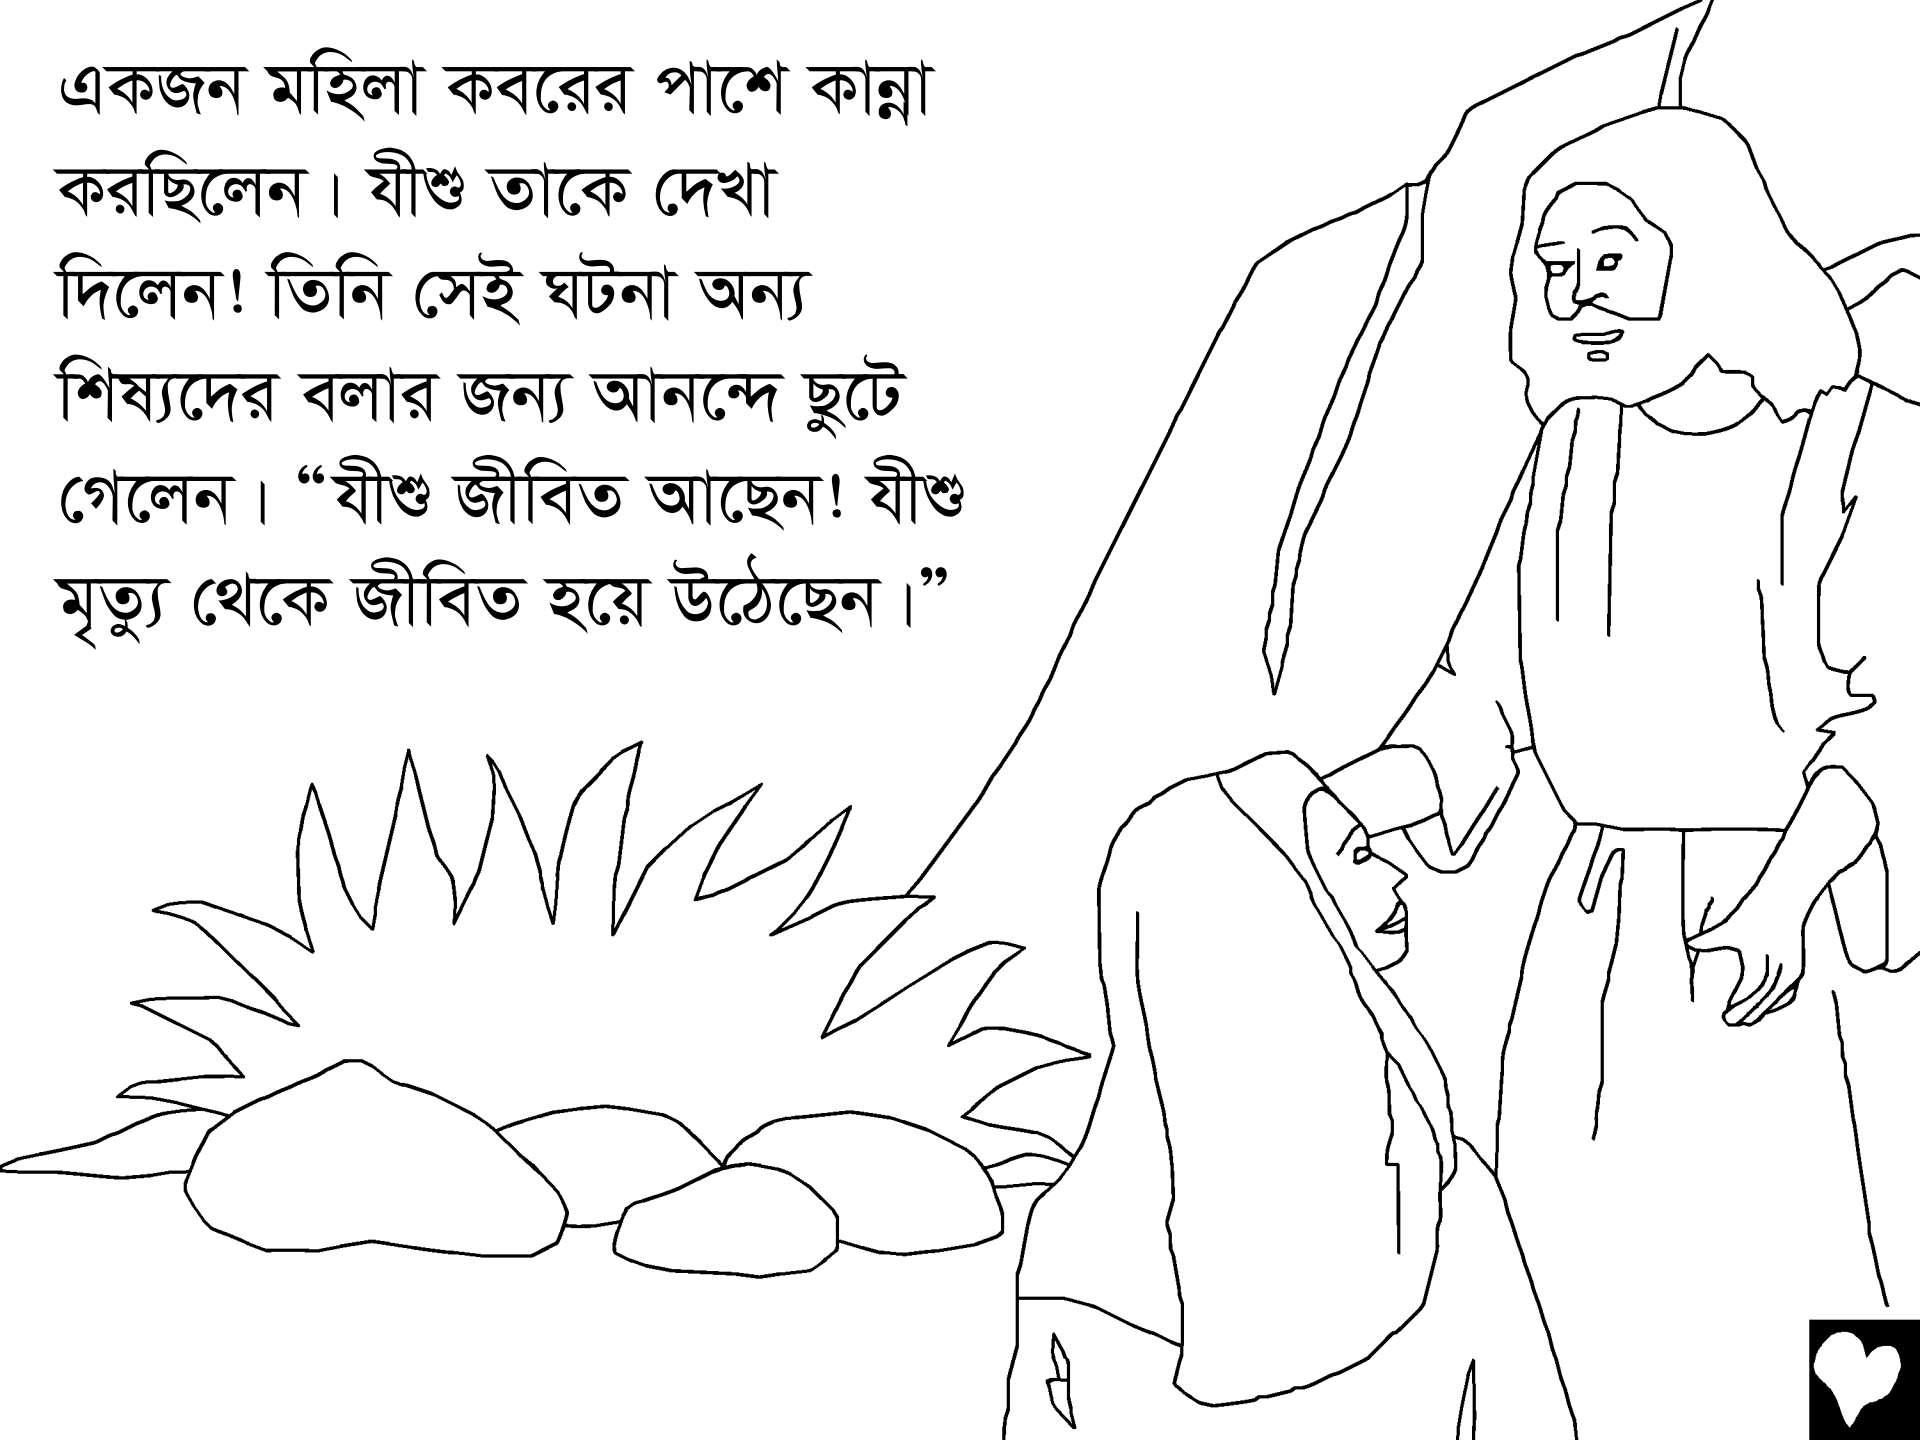 একজন মহিলা কবরের পাশে কান্না
করছিলেন। যীশু তাকে দেখা
দিলেন! তিনি সেই ঘটনা অন্য
শিষ্যদের বলার জন্য আনন্দে ছুটে
গেলেন। “যীশু জীবিত আছেন! যীশু
মৃত্যু থেকে জীবিত হয়ে উঠেছেন।”